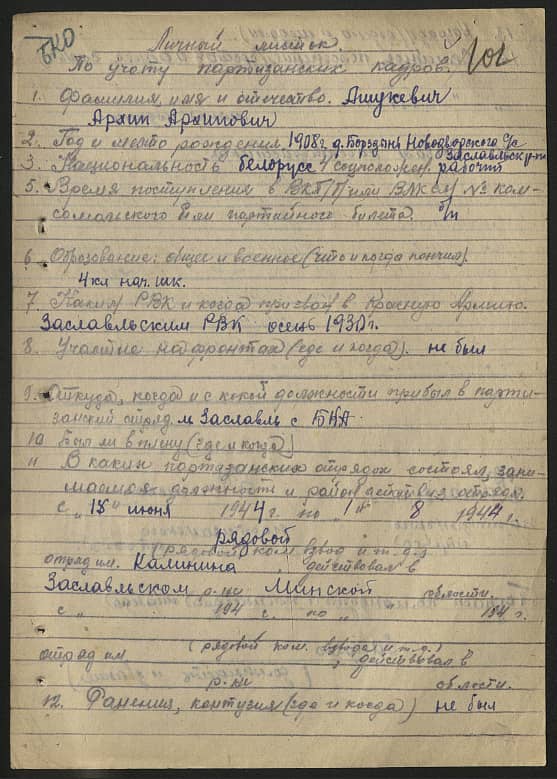 БКО
Личный листок.
По учету партизанских кадров.
1. Фамилия, имя и отчество. Лицукевич
Архип Архипович
2. Год и место рождения 1908г д. Борздынь Новодворского С/с
Заславльск р-на
3. Национальность белорусс 4 соцположен. рабочий
5. Время поступления в ВКП/б/ или ВЛКСМ № ком-
сомольского или партийного билета. б/п
6. Образование: общее и военное (что и когда кончил).
4 кл нач. шк.
7. Каким РВК и когда призван в Красную Армию.
Заславльским РВК осень 1930г.
8. Участие на фронтах (где и когда). не был
9. Откуда, когда и с какой должности прибыл в парти-
занский отряд. м Заславль с БКА
10 Был ли в плену (где и когда)
11 В каких партизанских отрядах состоял, зани-
маемая должность и район действия отряда.
с „15" июня 1944 г. по „1" 8 1944 г.
рядовой
(рядовой ком. взвод и т.д.)
отряд им. Калинина, действовал в
Заславльском р-не Минской области.
с „ 194 с „ по „ 194 г.
(рядовой ком. взвода и т.д.)
отряд им , действовал в
р-не области.
12. Ранения, контузия (где и когда) не был